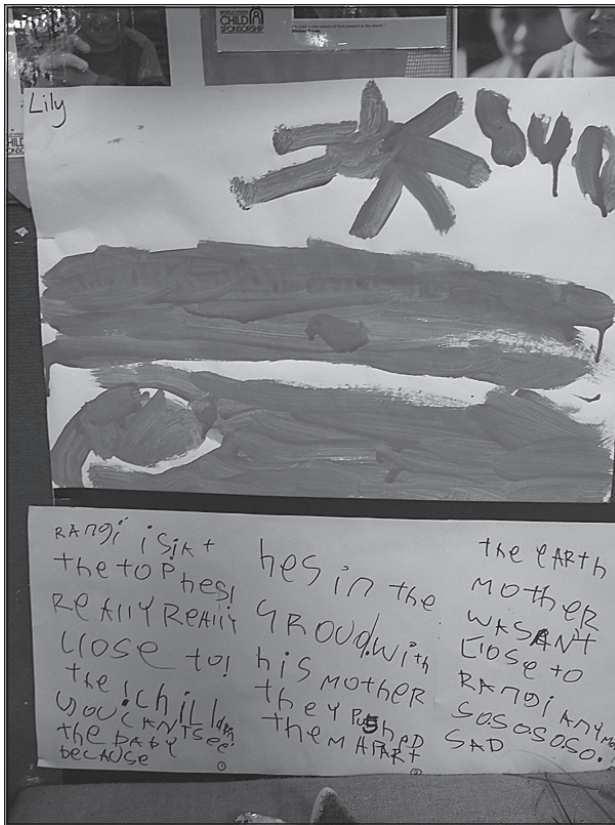 CHILD
SPONSORSHIP
Lily
Sun
RANgi iSiAt
the toP hes!
ReAlly ReAlly
CloSe to!
the !chiLldrn
YOU CANtSee!
the BABY
becAuse
hes in the
GROUd.With
his MOtheR
theY PuSheD
theM APARt
the eARth
MOtheR
WASANt
CloSe to
RANgi ANYMoRe
SOSOSOSO.
SAD